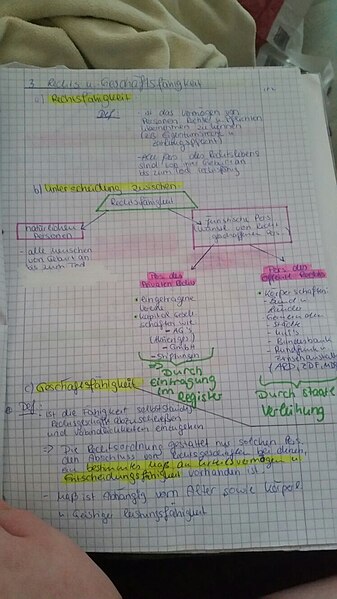 3. Rechts u. Geschäftsfähigkeit
a) Rechtsfähigkeit
Def.: - ist das Vermögen von
Personen Rechte u. Pflichten
übernehmen zu können
- Alle Pers. des Rechtslebens
sind von
bis zum Tod
b) Unterscheidung zwischen
Rechtsfähigkeit
natürlichen
Personen
- alle Menschen
von Geburt an
bis zum Tod
Juristische Pers.
Pers. des
Privaten Rechts
• Eingetragene
Vereine
• Kapital Gesell-
schaften wie
- AG's
- GmbH
- Stiftungen
=> Durch
Eintragung
im
Register
Pers. des
• Körperschaften:
- Bund u.
Länder
- Gemeinden
- Städte
- Bundesbank
- Rundfunk u.
(ARD, ZDF,
Durch staatl.
Verleihung
c) Geschäftsfähigkeit
Def.:
- ist die Fähigkeit selbstständig
Rechtsgeschäfte abzuschließen
und Verbindlichkeiten einzugehen
=> Die Rechtsordnung gestattet nur solchen Pers.
den Abschluss von Rechtsgeschäften bei denen,
ein bestimmtes Maß an Urteilsvermögen u.
Entscheidungsfähigkeit vorhanden ist
- Maß ist Abhängig vom Alter sowie Körperl.
u. Geistiger Leistungsfähigkeit